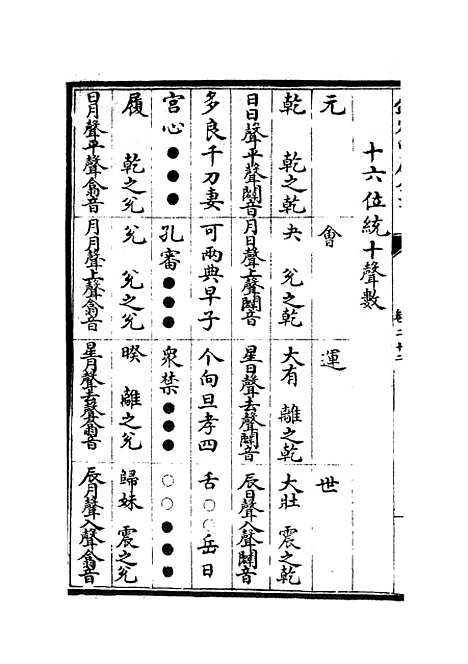 十六位統十聲數
元 會 運 世
乾 乾之乾 夬 兌之乾 大有 離之乾 大壯 震之乾
日日聲平聲闢音 月日聲上聲闢音 星日聲去聲闢音 辰日聲入聲闢音
多良千刀妻 可兩典早子 个向旦孝四 舌○○岳日
宮心●●● 孔審●●● 眾禁●●● ○○●●●
履 乾之兌 兌 兌之兌 睽 離之兌 歸妹 震之兌
日月聲平聲翕音 月月聲上聲翕音 星月聲去聲翕音 辰月聲入聲翕音